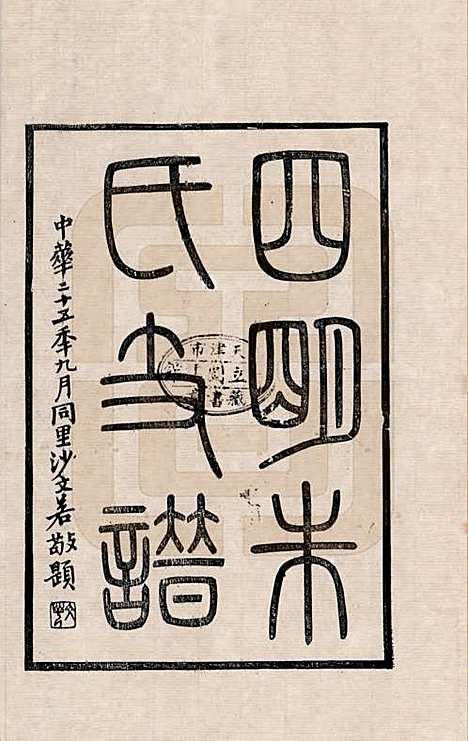 四明朱
氏支譜
中華二十五年九月同里沙文若敬題
天津市
立
藏書